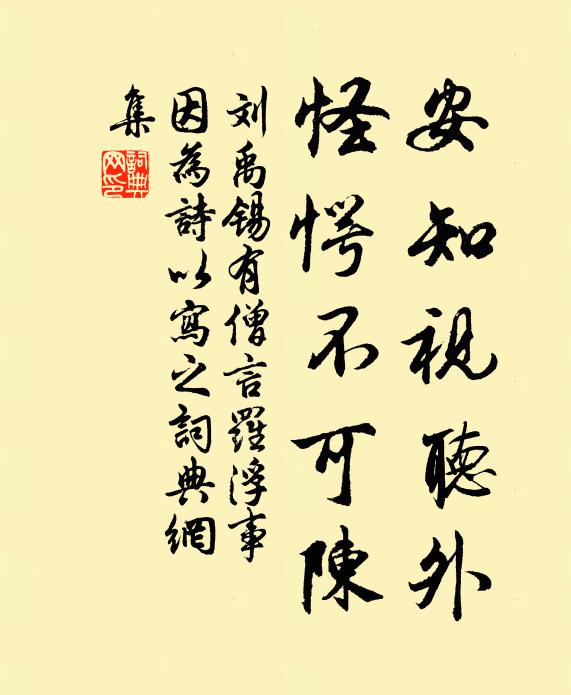 安知視聽外
怪愕不可陳
刘禹锡有僧言羅浮事
因為詩以寫之詞典網
集
詞典
网印